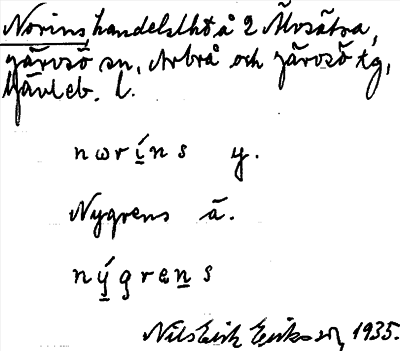 Norins handelslht å 2 Älvsätra,
järvsö sn, Arbrå och järvsö tg,
Gävleb. l.
nωríns y.
Nygrens ä.
nýgrens
Nils Erik Eriksson, 1935.